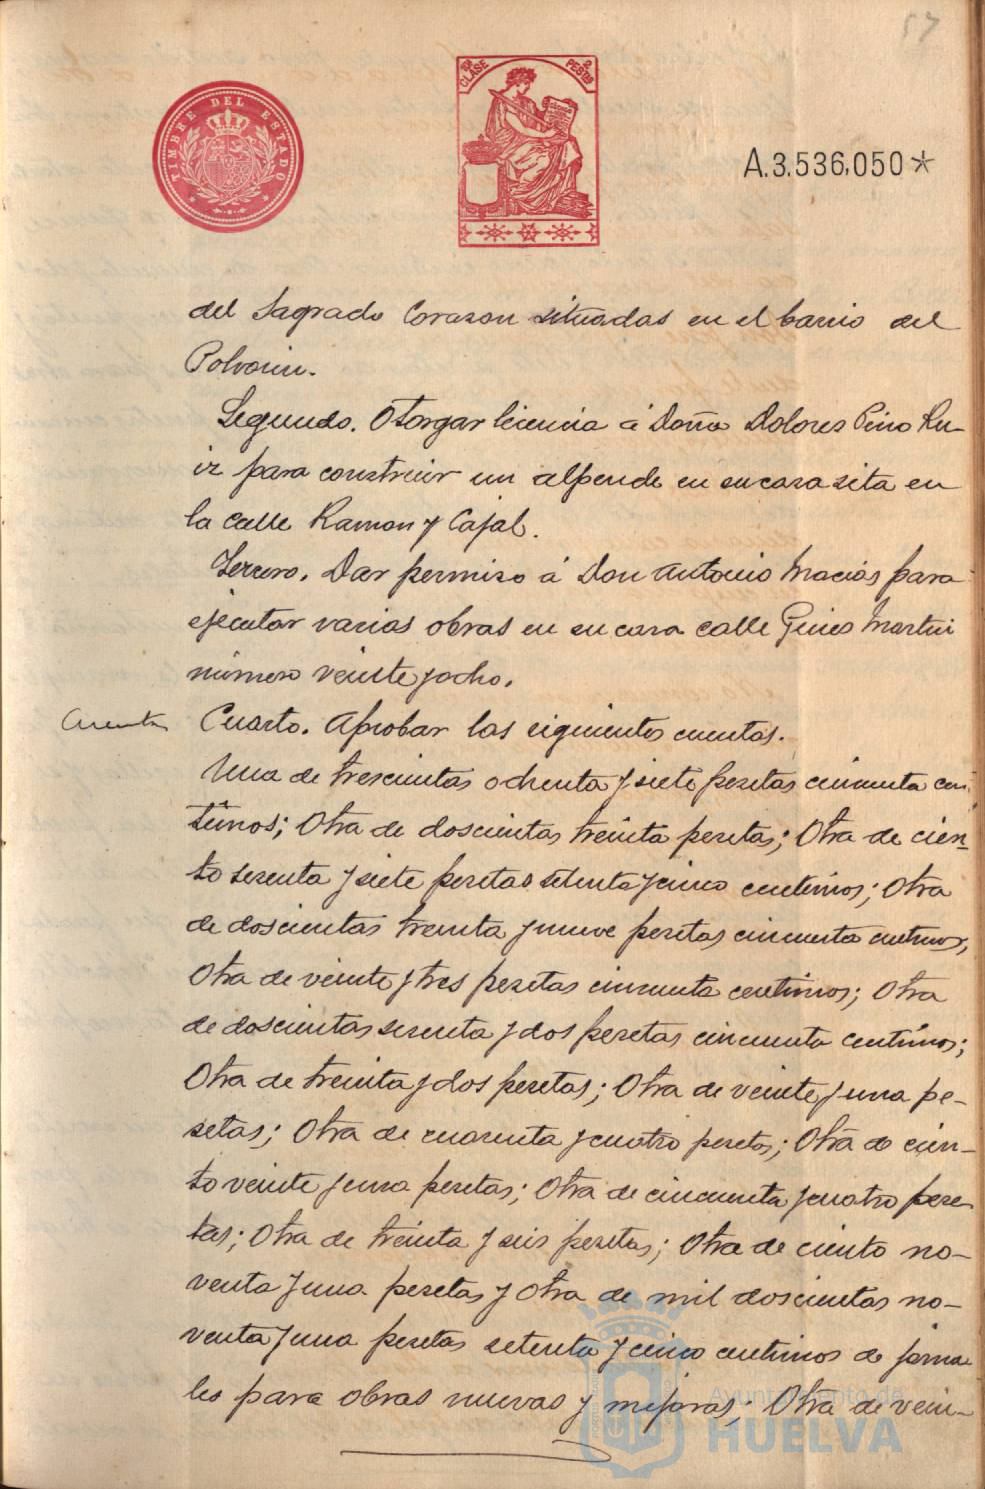 57
TIMBRE DEL ESTADO
10ª CLASE
2 PESTAS
A.3.536.050*
del Sagrado Corazon situadas en el barrio del
Polvorin.
Segundo. Otorgar licencia á Doña Dolores Pino Ru-
iz para construir un alpende en su casa sita en
la calle Ramon y Cajal.
Tercero. Dar permiso á Don Antonio Macias para
ejecutar varias obras en su casa calle Gines Martin
número veinte y ocho.
Cuentas
Cuarto. Aprobar las siguientes cuentas.
Una de trescientas ochenta y siete pesetas cincuenta cen-
timos; Otra de doscientas treinta pesetas; Otra de cien-
to sesenta y siete pesetas setenta y cinco centimos; Otra
de doscientas treinta y nueve pesetas cincuenta centimos;
Otra de veinte y tres pesetas cincuenta centimos; Otra
de doscientas sesenta y dos pesetas cincuenta centimos;
Otra de treinta y dos pesetas; Otra de veinte y una pe-
setas; Otra de cuarenta y cuatro pesetas; Otra de cien-
to veinte y una pesetas; Otra de cincuenta y cuatro pese-
tas; Otra de treinta y seis pesetas; Otra de ciento no-
venta y una pesetas y Otra de mil doscientas no-
venta y una pesetas setenta y cinco centimos de jorna-
les para obras nuevas y mejoras; Otra de vein-
Ayuntamiento de
HUELVA